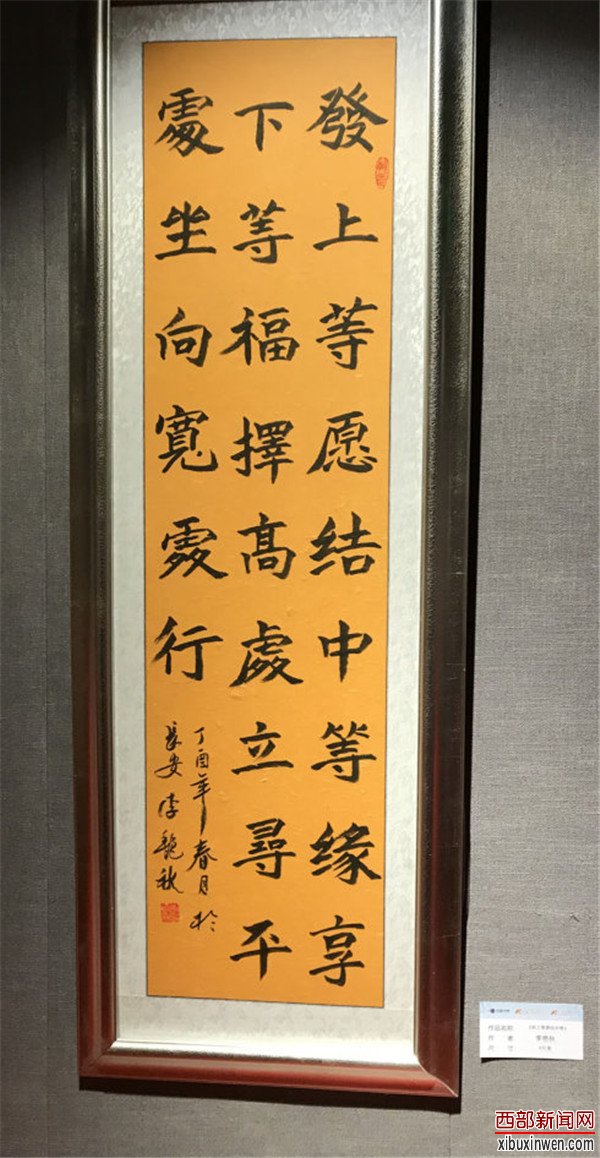 發上等愿结中等缘享
下等福擇髙處立尋平
處坐向寬處行
丁酉年春月於
長安李艷秋
作品名称
作 者 李艳秋
尺 寸
西部新闻网
xibuxinwen.com